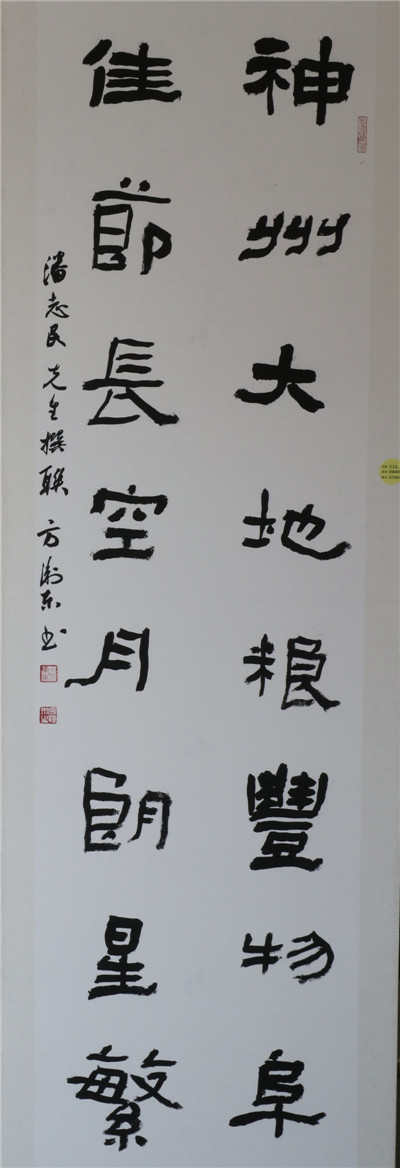 神州大地粮豐物阜
佳節長空月朗星繁
潘志民先生撰聯 方衛东书